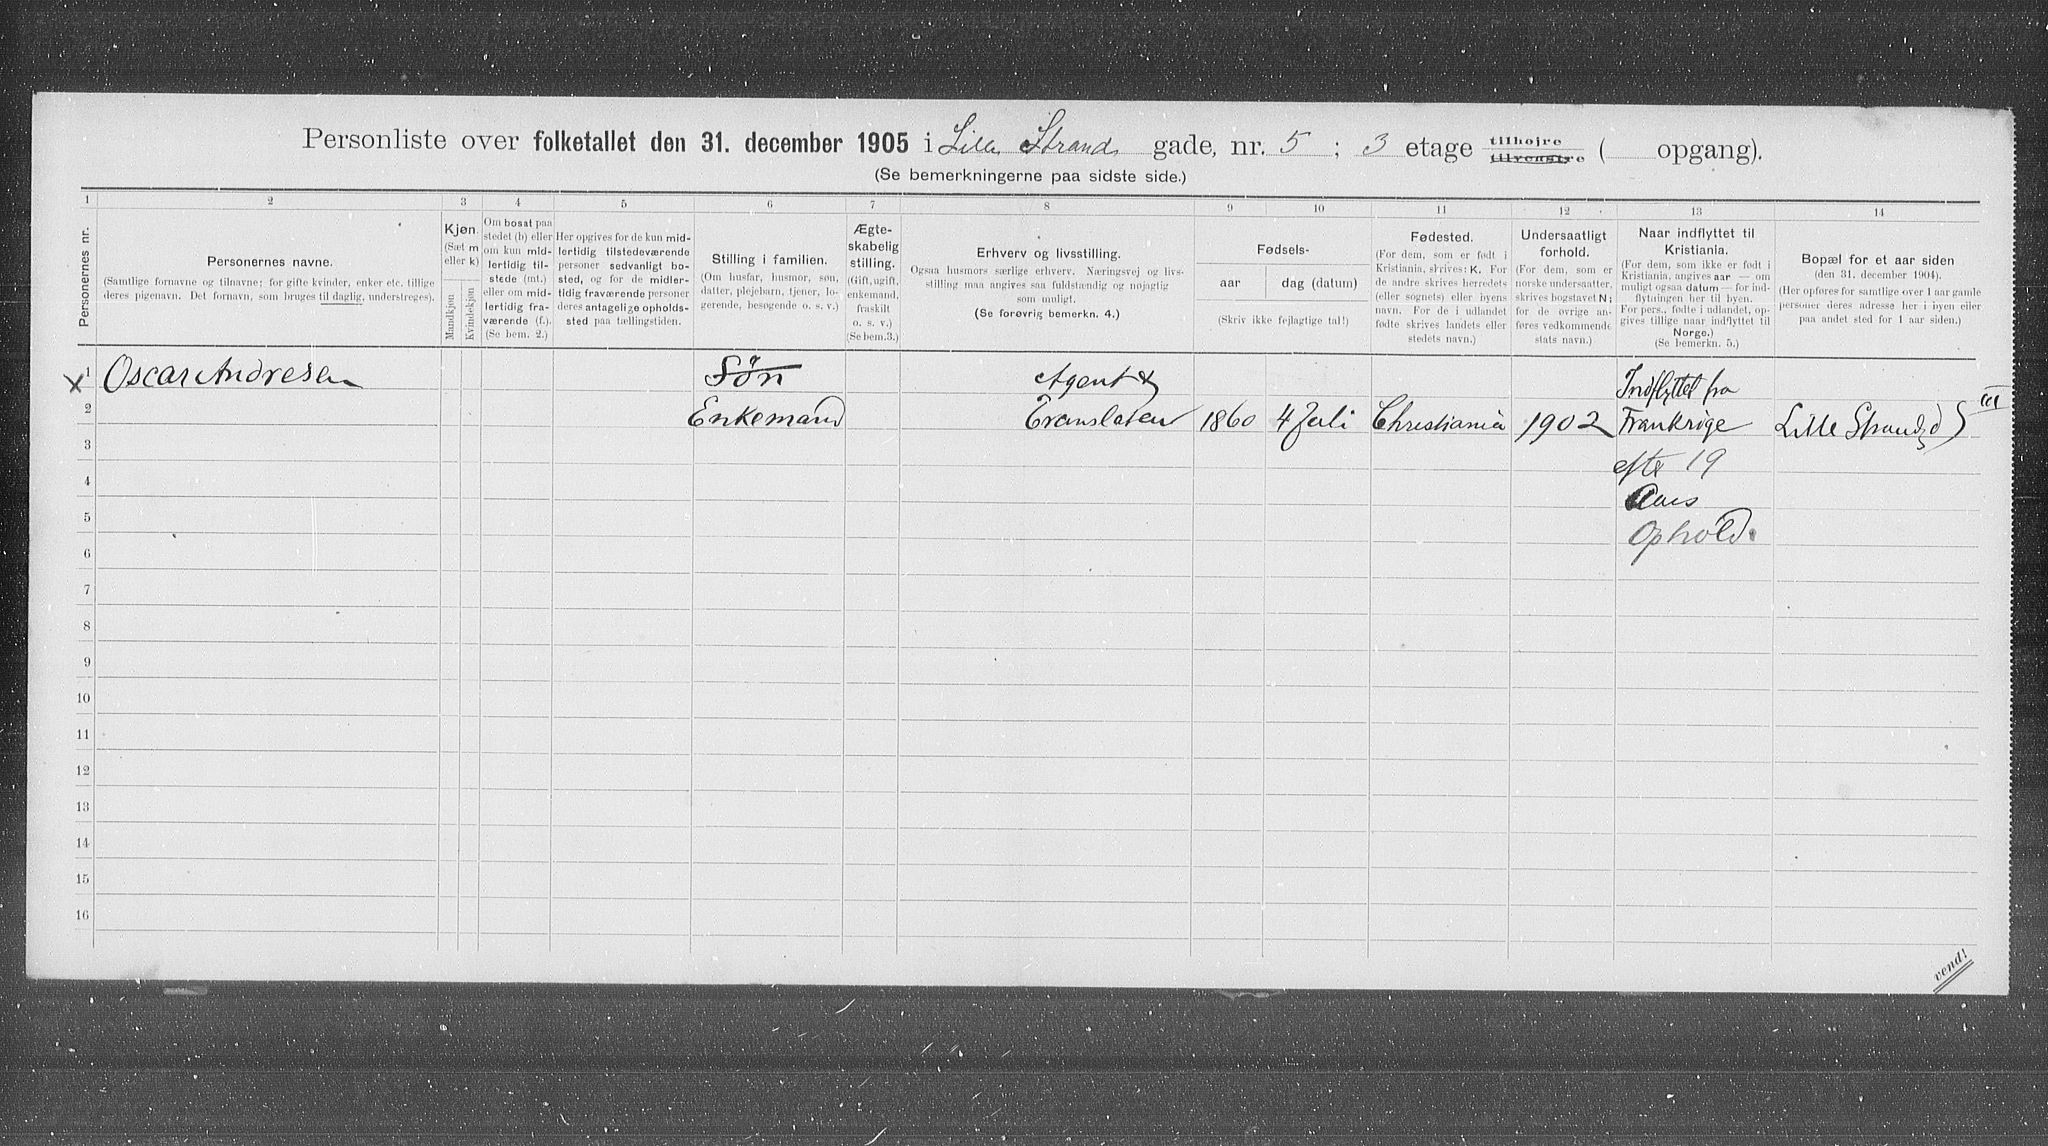 Personliste over folketallet den 31. december 1905 i Lille Strand gade, nr. 5 ; 3 etage tilhøjre tilvenstre ( opgang).
(Se bemerkningerne paa sidste side.)
1 2 3 4 5 6 7 8 9 10 11 12 13 14
Personernes nr.
Personernes navne.
(Samtlige fornavne og tilnavne; for gifte kvinder, enker etc. tillige
deres pigenavn. Det fornavn, som bruges til daglig, understreges).
Kjøn.
(Sæt m
eller k)
Mandkjøn
Kvindekjøn
Om bosat paa
stedet (b) eller
om kun mid-
lertidig til-
stede (mt.)
eller om mid-
lertidig fra-
værende (f.).
(Se bem. 2.)
Her opgives for de kun mid-
lertidig tilstedeværende
personer sedvanligt bo-
sted, og for de midler-
tidig fraværende personer
deres antagelige opholds-
sted paa tællingstiden.
Stilling i familien.
(Om husfar, husmor, søn,
datter, plejebarn, tjener, lo-
gerende, besøgende o. s. v.)
Ægte-
skabelig
stilling.
(Gift, ugift,
enkemand,
fraskilt
o. s. v.)
(Se bem.3.)
Erhverv og livsstilling.
Ogsaa husmors særlige erhverv. Næringsvej og livs-
stilling maa angives saa fuldstændig og nøjagtig
som muligt.
(Se forøvrig bemerkn. 4.)
Fødsels-
aar dag (datum)
(Skriv ikke fejlagtige tal!)
Fødested.
(For dem, som er født i
Kristiania, skrives: K. For
de andre skrives herredets
(eller sognets) eller byens
navn. For de i udlandet
fødte skrives landets eller
stedets navn.)
Undersaatligt
forhold.
(For dem, som er
norske undersaatter,
skrives bogstavet N;
for de øvrige an-
føres vedkommende
stats navn.)
Naar indflyttet til
Kristiania.
(For dem, som ikke er født i
Kristiania, angives aar — om
muligt ogsaa datum — for ind-
flytningen her til byen.
For pers., fødte i udlandet, op-
gives tillige naar indflyttet til
Norge.)
(Se bemerkn. 5.)
Bopæl for et aar siden
(den 31. december 1904).
(Her opføres for samtlige over 1 aar gamle
personer deres adresse her i byen eller
paa andet sted for 1 aar siden.)
x 1 Oscar Andresen Søn Agent & Indflyttet fra
2 Enkemand Translatør 1860 4 Juli Christiania 1902 Frankrige Lille Strandgd 5 III
3 efter 19
4 Aars
5 Ophold.
6
7
8
9
10
11
12
13
14
15
16
vend!